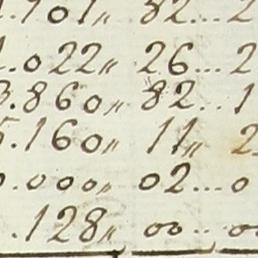 .701„ 82...2
.022„ 26...2
3.860„ 82...1
5.160„ 11„ 2
0.000„ 02...0
.128„ 00.. 00